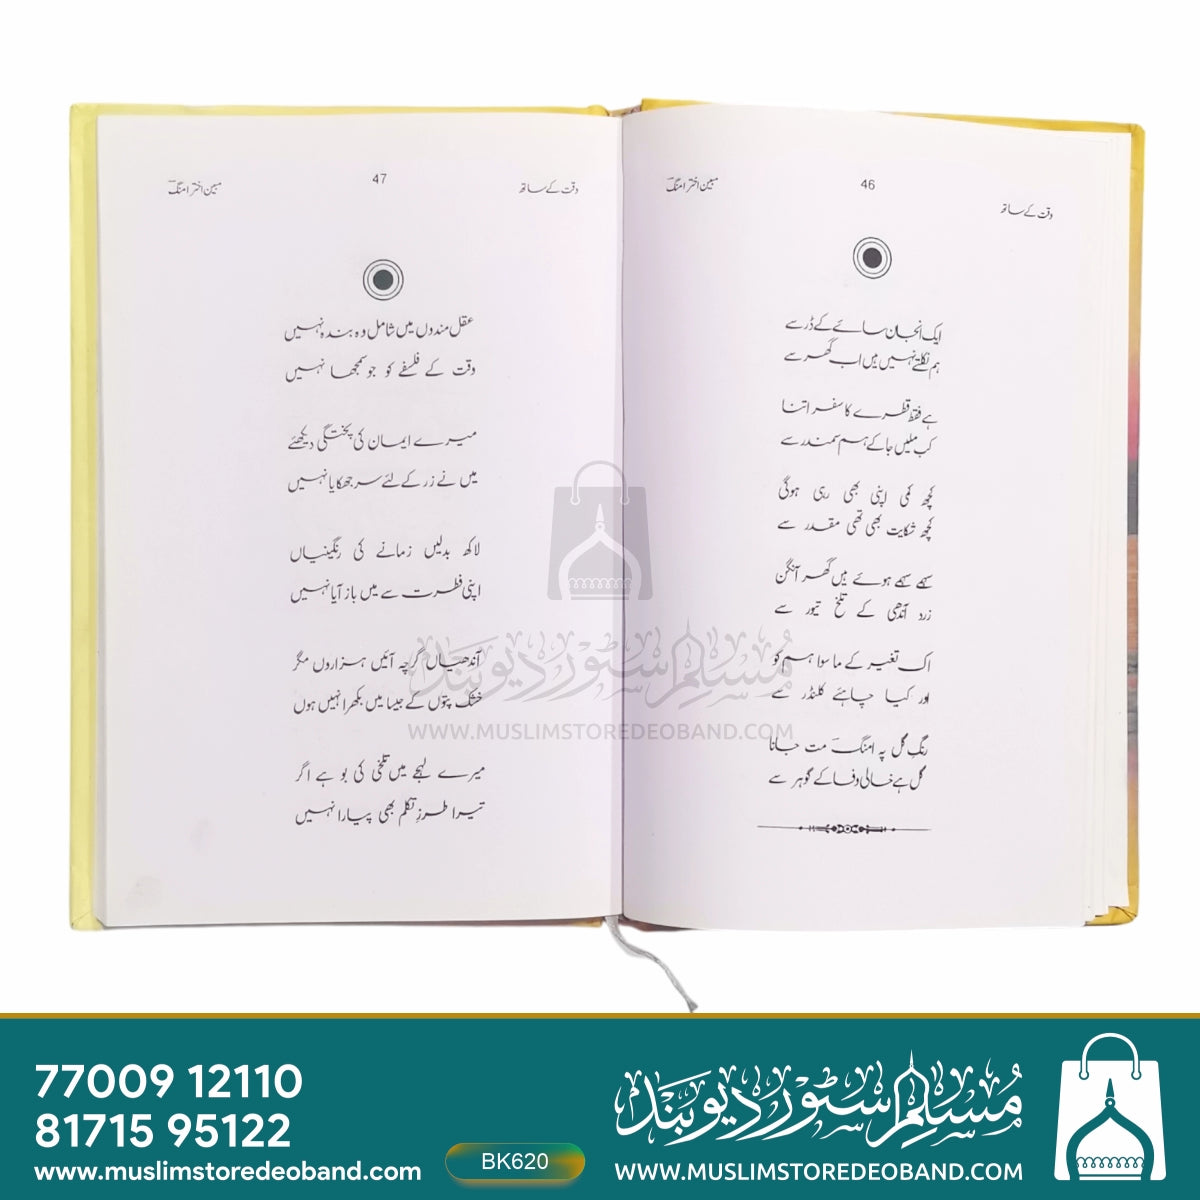 وقت کے ساتھ
46
مبین اختر امنگؔ
ایک انجان سائے کے ڈر سے
ہم نکلتے نہیں ہیں اب گھر سے
ہے فقط قطرے کا سفر اتنا
کب ملیں جا کے ہم سمندر سے
کچھ کمی اپنی بھی رہی ہوگی
کچھ شکایت بھی تھی مقدر سے
سہمے سہمے ہوئے ہیں گھر آنگن
زرد آندھی کے تلخ تیور سے
اک تغیر کے ماسوا ہم کو
اور کیا چاہئے کلنڈر سے
رنگِ گل پہ امنگؔ مت جانا
گل ہے خالی وفا کے گوہر سے
وقت کے ساتھ
47
مبین اختر امنگؔ
عقل مندوں میں شامل وہ بندہ نہیں
وقت کے فلسفے کو جو سمجھا نہیں
میرے ایمان کی پختگی دیکھئے
میں نے زر کے لئے سر جھکایا نہیں
لاکھ بدلیں زمانے کی رنگینیاں
اپنی فطرت سے میں باز آیا نہیں
آندھیاں گرچہ آئیں ہزاروں مگر
خشک پتوں کے جیسا میں بکھرا نہیں ہوں
میرے لہجے میں تلخی کی بو ہے اگر
تیرا طرزِ تکلم بھی پیارا نہیں
مسلم سٹور دیوبند
WWW.MUSLIMSTOREDEOBAND.COM
77009 12110
81715 95122
www.muslimstoredeoband.com
BK620
مسلم سٹور دیوبند
WWW.MUSLIMSTOREDEOBAND.COM